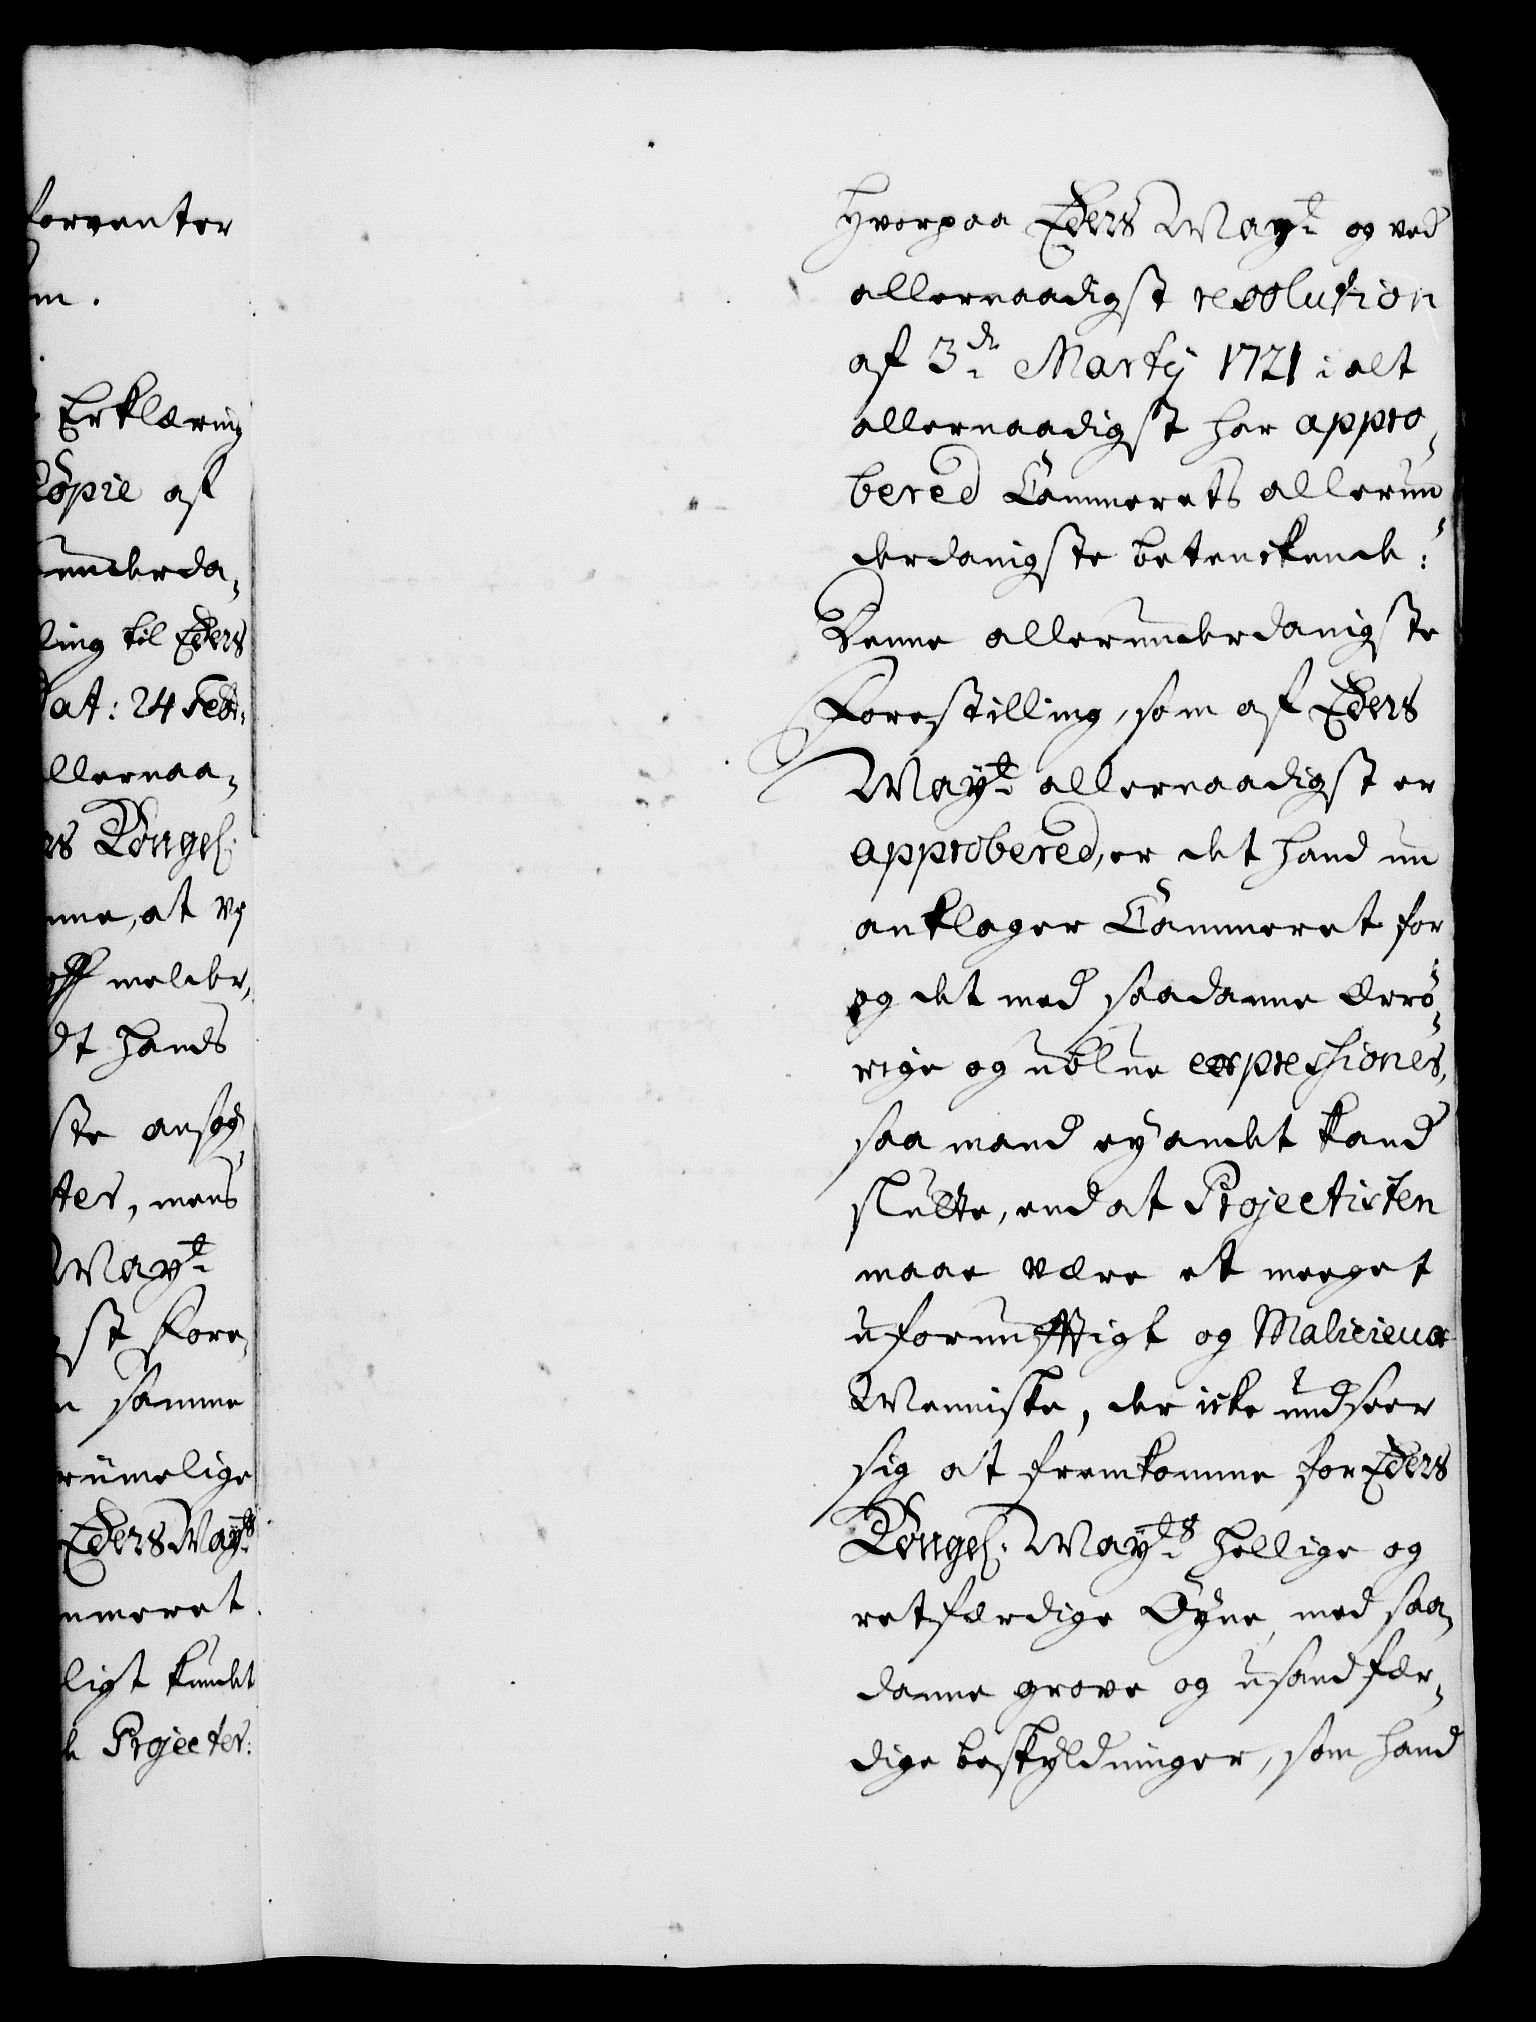 forventer
m.
Erklæring
Copie af
underda-
ling til Eders
dat: 24 Febr:
llernaa-
rs Kongel:
nne, at vj
melder,
dt hands
ste ansøg
ter, mens
Mayt
st Fore-
n samme
rimelige
Eders Mayts
mmeret
ligt kundet
e Projecter:
hvorpaa Eders Mayt og ved
allernaadigst resolution
af 3de Martij 1721 i alt
allernaadigst har appro-
bered Cammerets allerun-
derdanigste betenckende:
Denne allerunderdanigste
Forestilling, som af Eders
Mayt allernaadigst er
approbered, er det hand nu
anklager Cammeret for
og det med saadanne ærrø-
rige og ublue expressiones,
saa mand ey andet kand
slutte, end at Projectisten
maae være et meeget
ufornufftigt og Malicieux
Menniske, der icke undseer
sig at fremkomme for Eders
Kongel: Mayts hellige og
retfærdige Øyne med saa-
danne grove og usandfær-
dige beskyldninger, som hand